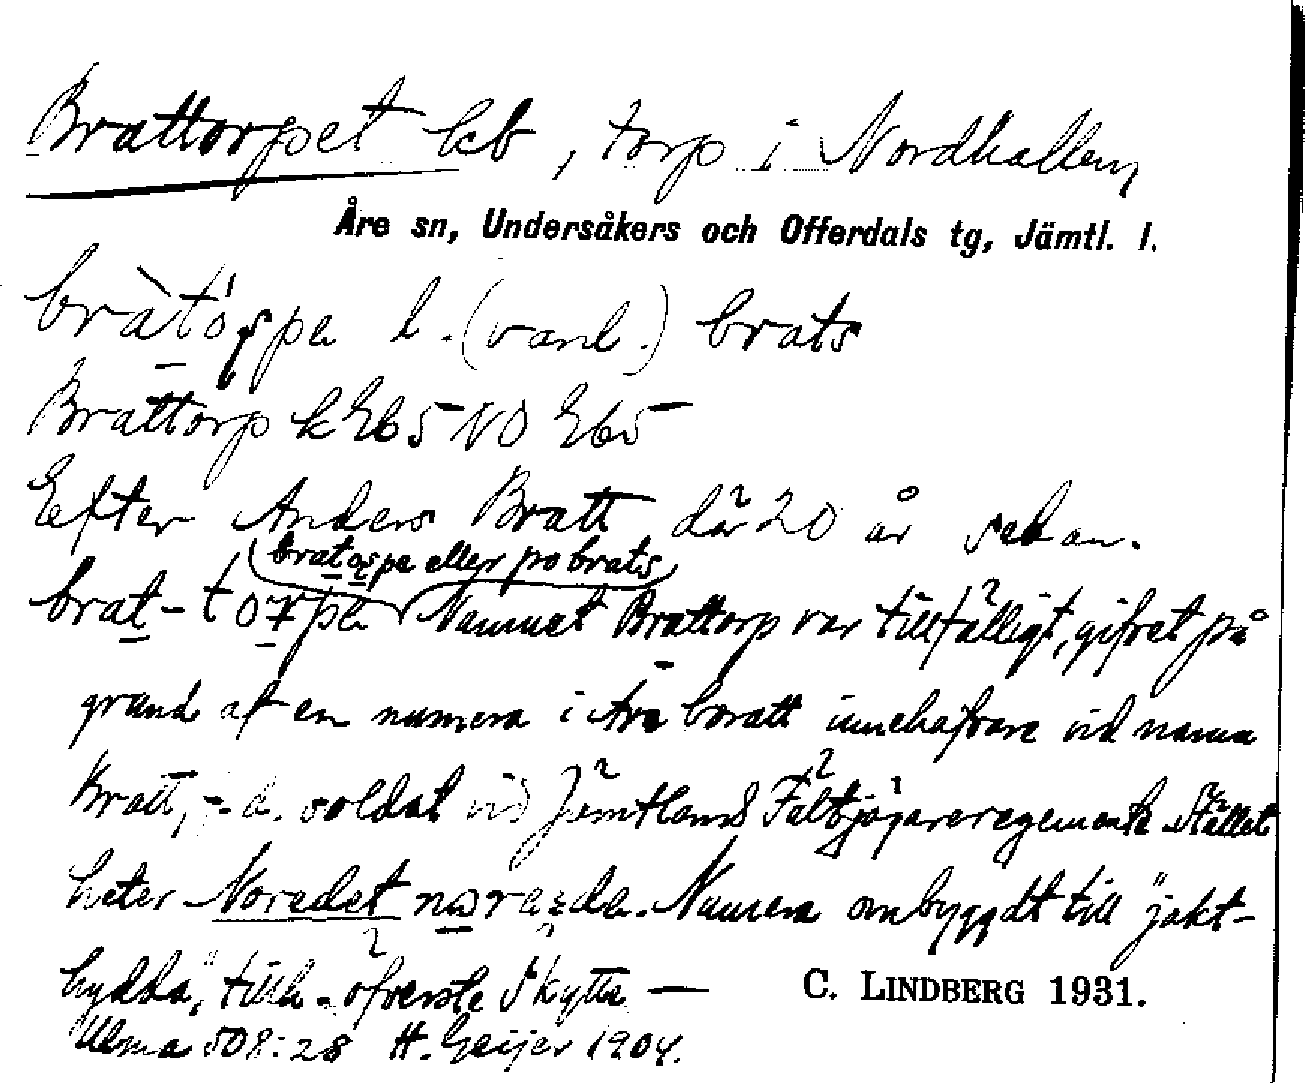 Brattorpet kb, torp i Nordhallen,
Åre sn, Undersåkers och Offerdals tg, Jämtl. l.
bràtó̱spa l. (vanl.) brats
Brattorp k Eb5 NO Eb5
Efter Anders Bratt där 20 år sedan.
bratospe eller po brats
brat-torpe Namnet Brattorp var tillfälligt, gifvet på
grund af en numera i Åre boratt innehafvare vid namn
Bratt, f.d. soldat vid Jämtlands Fältjägareregemente. Stället
heter Noredet norazde. Numera ombyggdt till "jakt-
hydda", tillh. öfverste Skytte —
C. LINDBERG 1931.
Ulma 508:28 H. Geijer 1904.